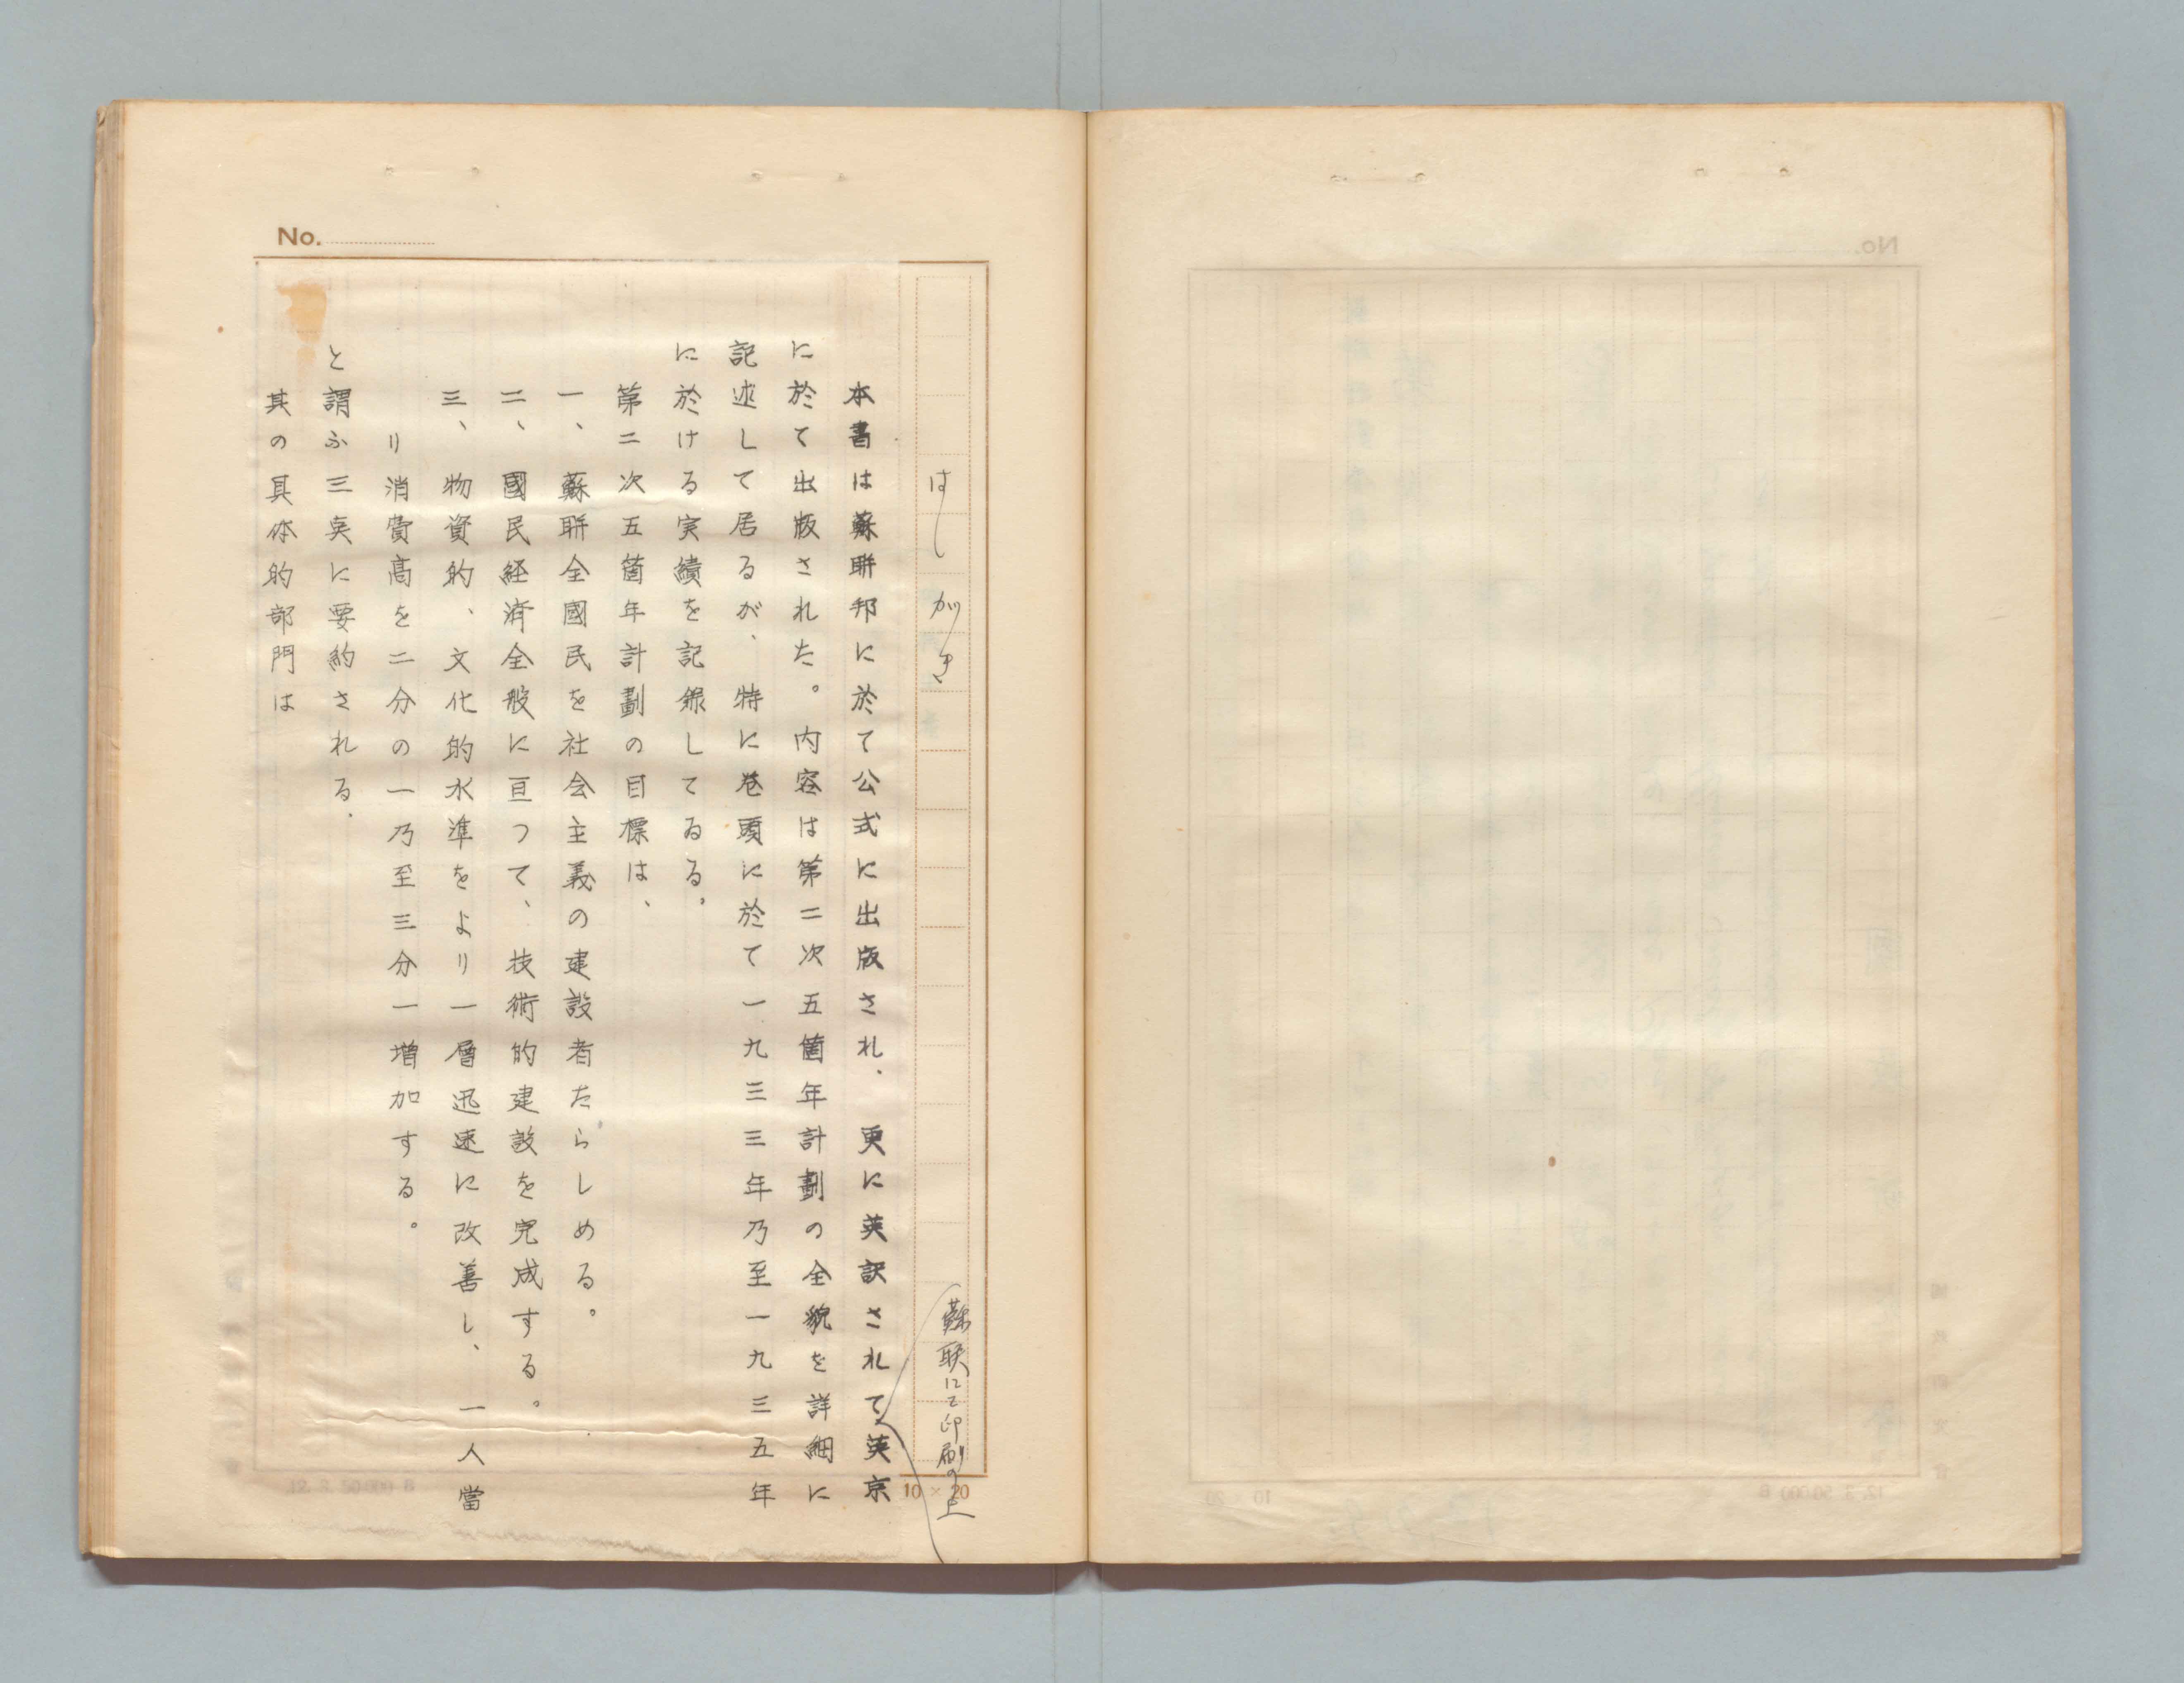 No.
はしがき
蘇联にて印刷の上
本書は蘇聯邦に於て公式に出版され、更に英訳されて英京
に於て出版された。内容は第二次五箇年計劃の全貌を詳細に
記述して居るが、特に巻頭に於て一九三三年乃至一九三五年
に於ける実績を記録してゐる。
第二次五箇年計劃の目標は、
一、蘇聯全國民を社会主義の建設者たらしめる。
二、國民経済全般に亘つて、技術的建設を完成する。
三、物資的、文化的水準をより一層迅速に改善し、一人當
り消費高を二分の一乃至三分一増加する。
と謂ふ三奌に要約される。
其の具体的部門は
10×20